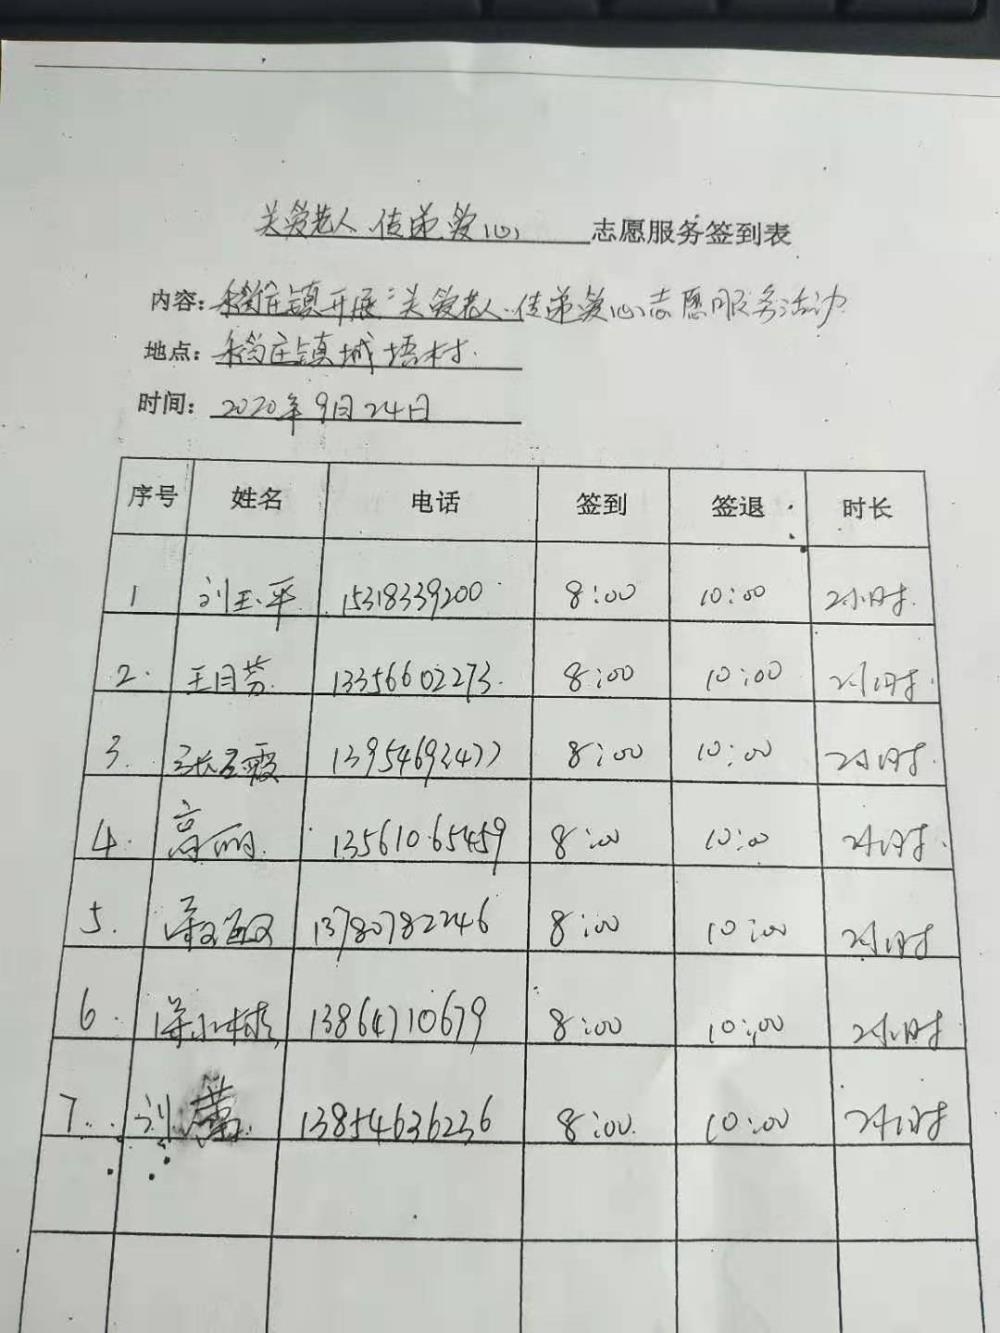 关爱老人.传递爱心 志愿服务签到表
内容: 稻庄镇开展"关爱老人.传递爱心志愿服务活动
地点: 稻庄镇城坞村.
时间: 2020年9月24日
序号 姓名 电话 签到 签退 时长
1 刘玉平 15318339200 8:00 10:00 2小时.
2. 王月芬. 13356602273. 8:00 10:00 2小时.
3. 13954692477 8:00 10:00 2小时.
4. 高丽. 13561065459 8:00 10:00 2小时.
5. 13780782246 8:00 10:00 2小时
6. 13864710679 8:00 10:00 2小时
7.. 刘 13854636236 8:00. 10:00 2小时